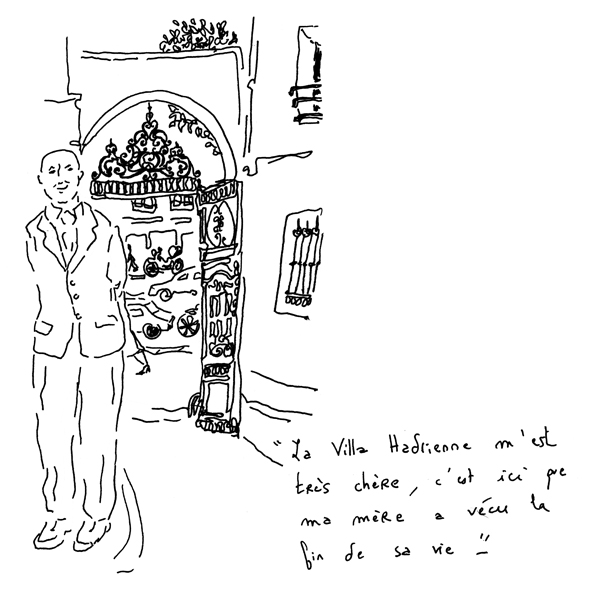 "La Villa Hadrienne m'est
très chère, c'est ici que
ma mère a vécu la
fin de sa vie"